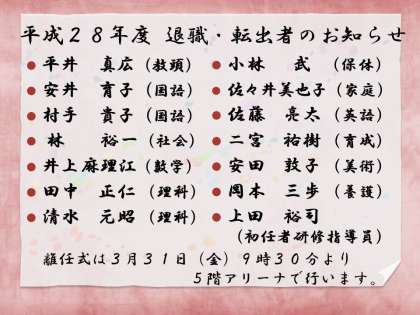 平成２８年度 退職・転出者のお知らせ
● 平井 真広（教頭）
● 安井 育子（国語）
● 村手 貴子（国語）
● 林 裕一（社会）
● 井上麻理江（数学）
● 田中 正仁（理科）
● 清水 元昭（理科）
● 小林 武（保体）
● 佐々井美也子（家庭）
● 佐藤 亮太（英語）
● 二宮 祐樹（育成）
● 安田 敦子（美術）
● 岡本 三歩（養護）
● 上田 裕司
（初任者研修指導員）
離任式は３月３１日（金）９時３０分より
５階アリーナで行います。